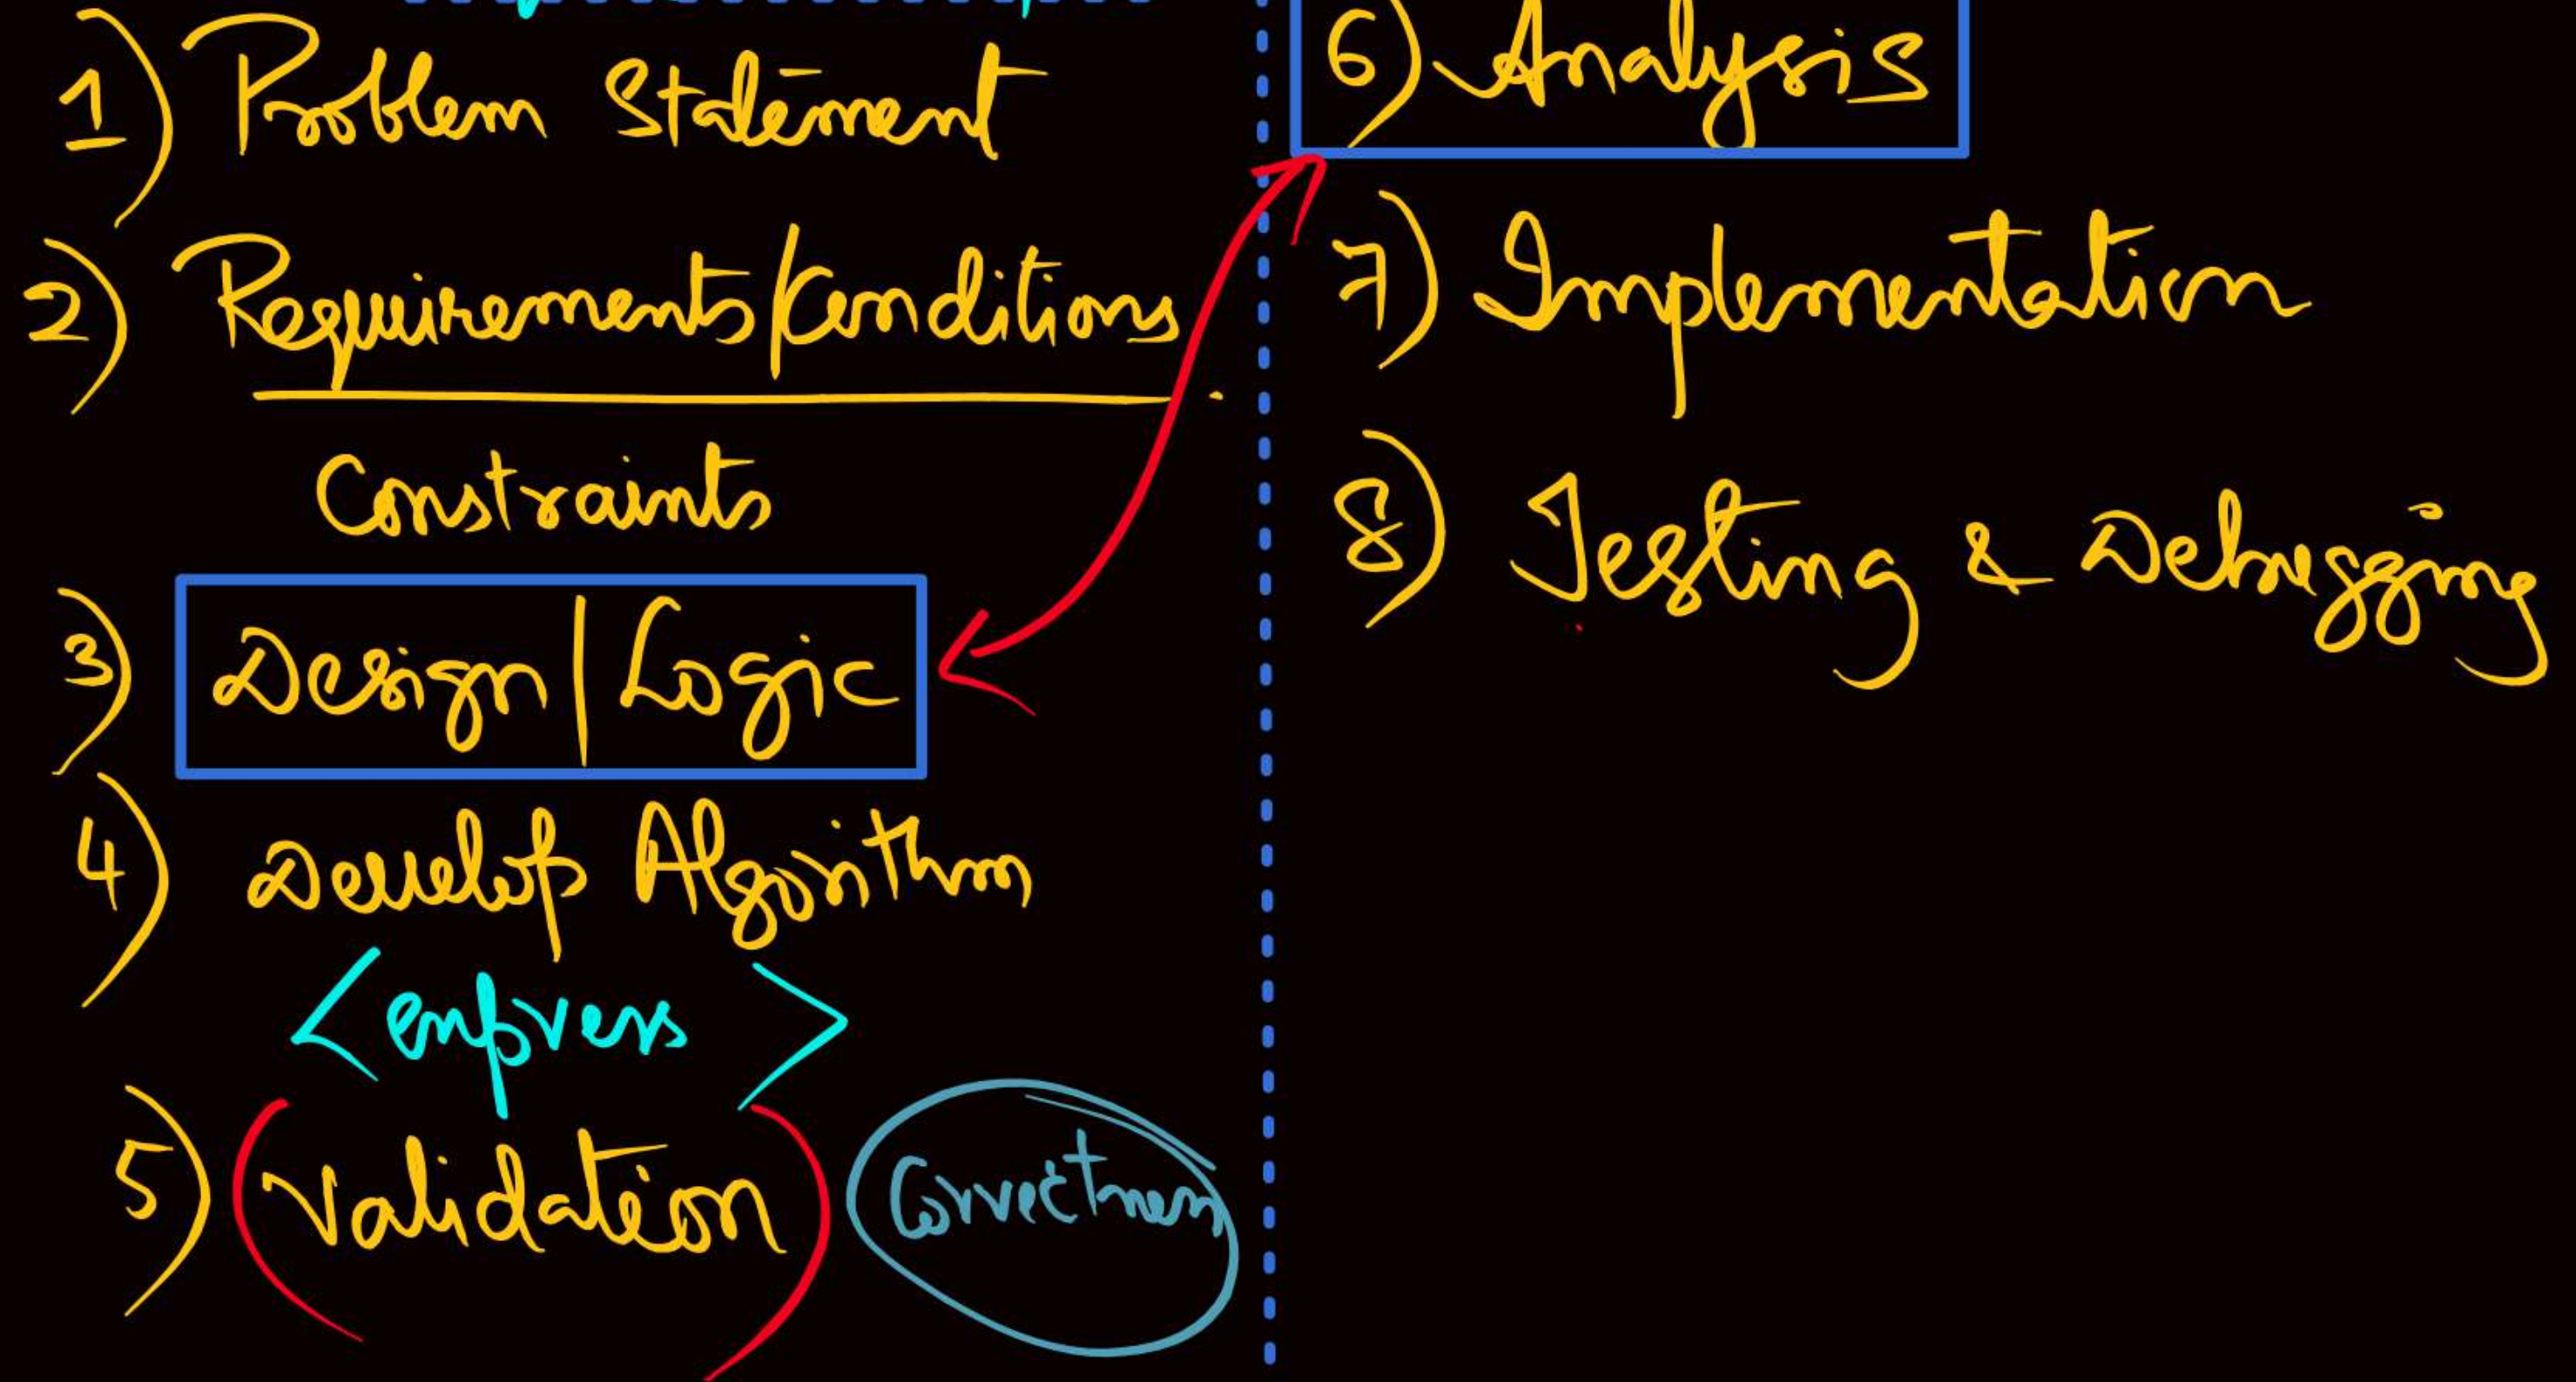 1) Problem Statement
2) Requirements/Conditions
Constraints
3) Design | Logic
4) Develop Algorithm
<express>
5) (Validation) Correctness
6) Analysis
7) Implementation
8) Testing & Debugging